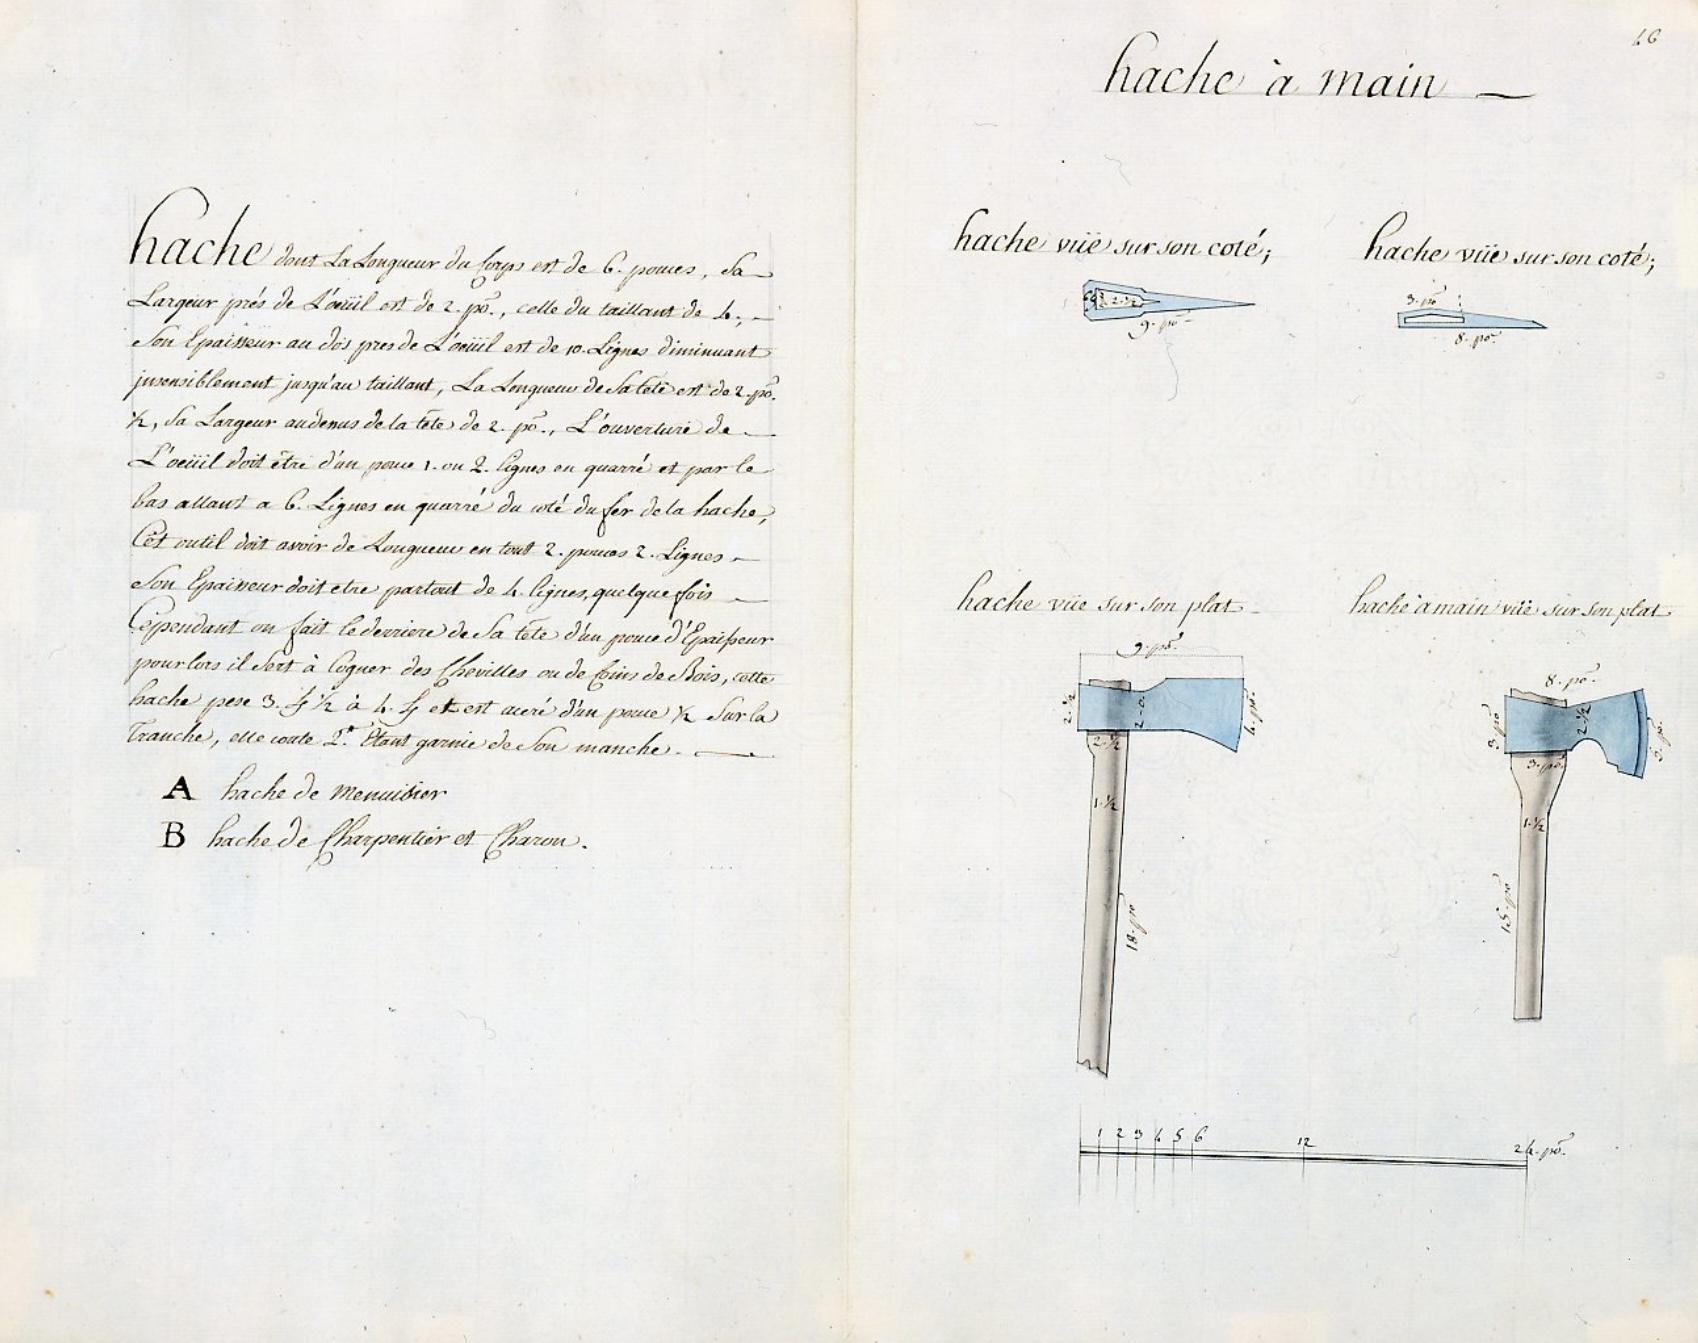 hache dont La Longueur du Corps est de 6. pouces, Sa
Largeur prés de L'oeüil est de 2. po., celle du taillant de 4.,
Son Epaisseur au dos pres de L'oeüil est de 10. Lignes diminuant
insensiblement jusqu'au taillant, La Longueur de Sa tête est de 2. po.
½, Sa Largeur audessus de la tête de 2. po., L'ouverture de
L'oeüil doit être d'un pouce 1. ou 2. lignes en quarré et par le
bas allant a 6. Lignes en quarré du coté du fer de la hache,
Cet outil doit avoir de Longueur en tout 2. pouces 2. Lignes
Son Epaisseur doit etre partout de 4. lignes, quelque fois
Cependant on fait le derriere de Sa tête d'un pouce d'Epaisseur
pour lors il Sert à Cogner des Chevilles ou de Coins de Bois, cette
hache pese 3. ℔ ½ à 4. ℔ et est aceré d'un pouce ½ Sur la
Tranche, elle coute 2.ᵗᵗ Etant garnie de Son manche.
A hache de Menuisier
B hache de Charpentier et Charon.
46
hache à main
hache vüe sur son coté;
hache vüe sur son coté;
2-½
9. po
3. po
8. po
hache vüe sur son plat
hache à main vüe sur son plat
9. po.
2-½
2-0
4. po.
2-½
1-½
18. po
8. po.
3. po
2-½
3. po.
1-½
15. po
1 2 3 4 5 6 12 24. po.